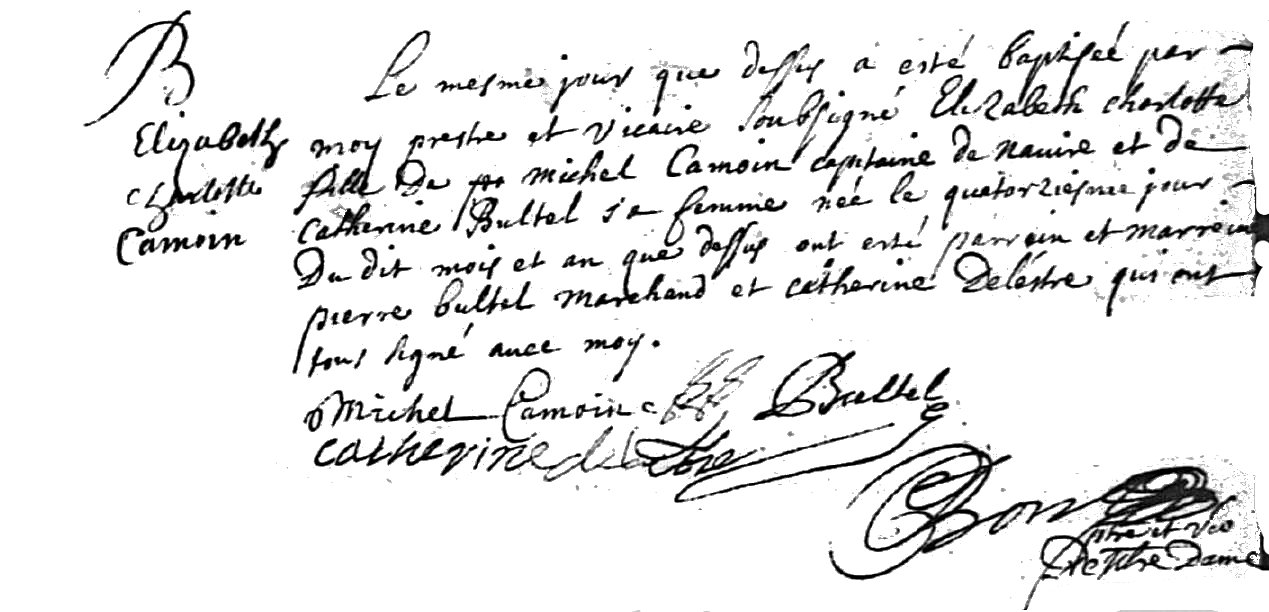 B
Elizabeth
Charlotte
Camoin
Le mesme jour que dessus a esté baptiseé par
moy prestre et vicaire soubsigné Elizabeth charlotte
fille De michel Camoin capitaine de navire et de
catherine Bultel sa femme néé le quatorziesme jour
Du dit mois et an que dessus ont esté parrain et marreine
pierre bultel marchand et catherine Delestre qui ont
tous signé avec moy.
Michel Camoin Bultel
catherine delestre
ptre et vic
De Nre Dame